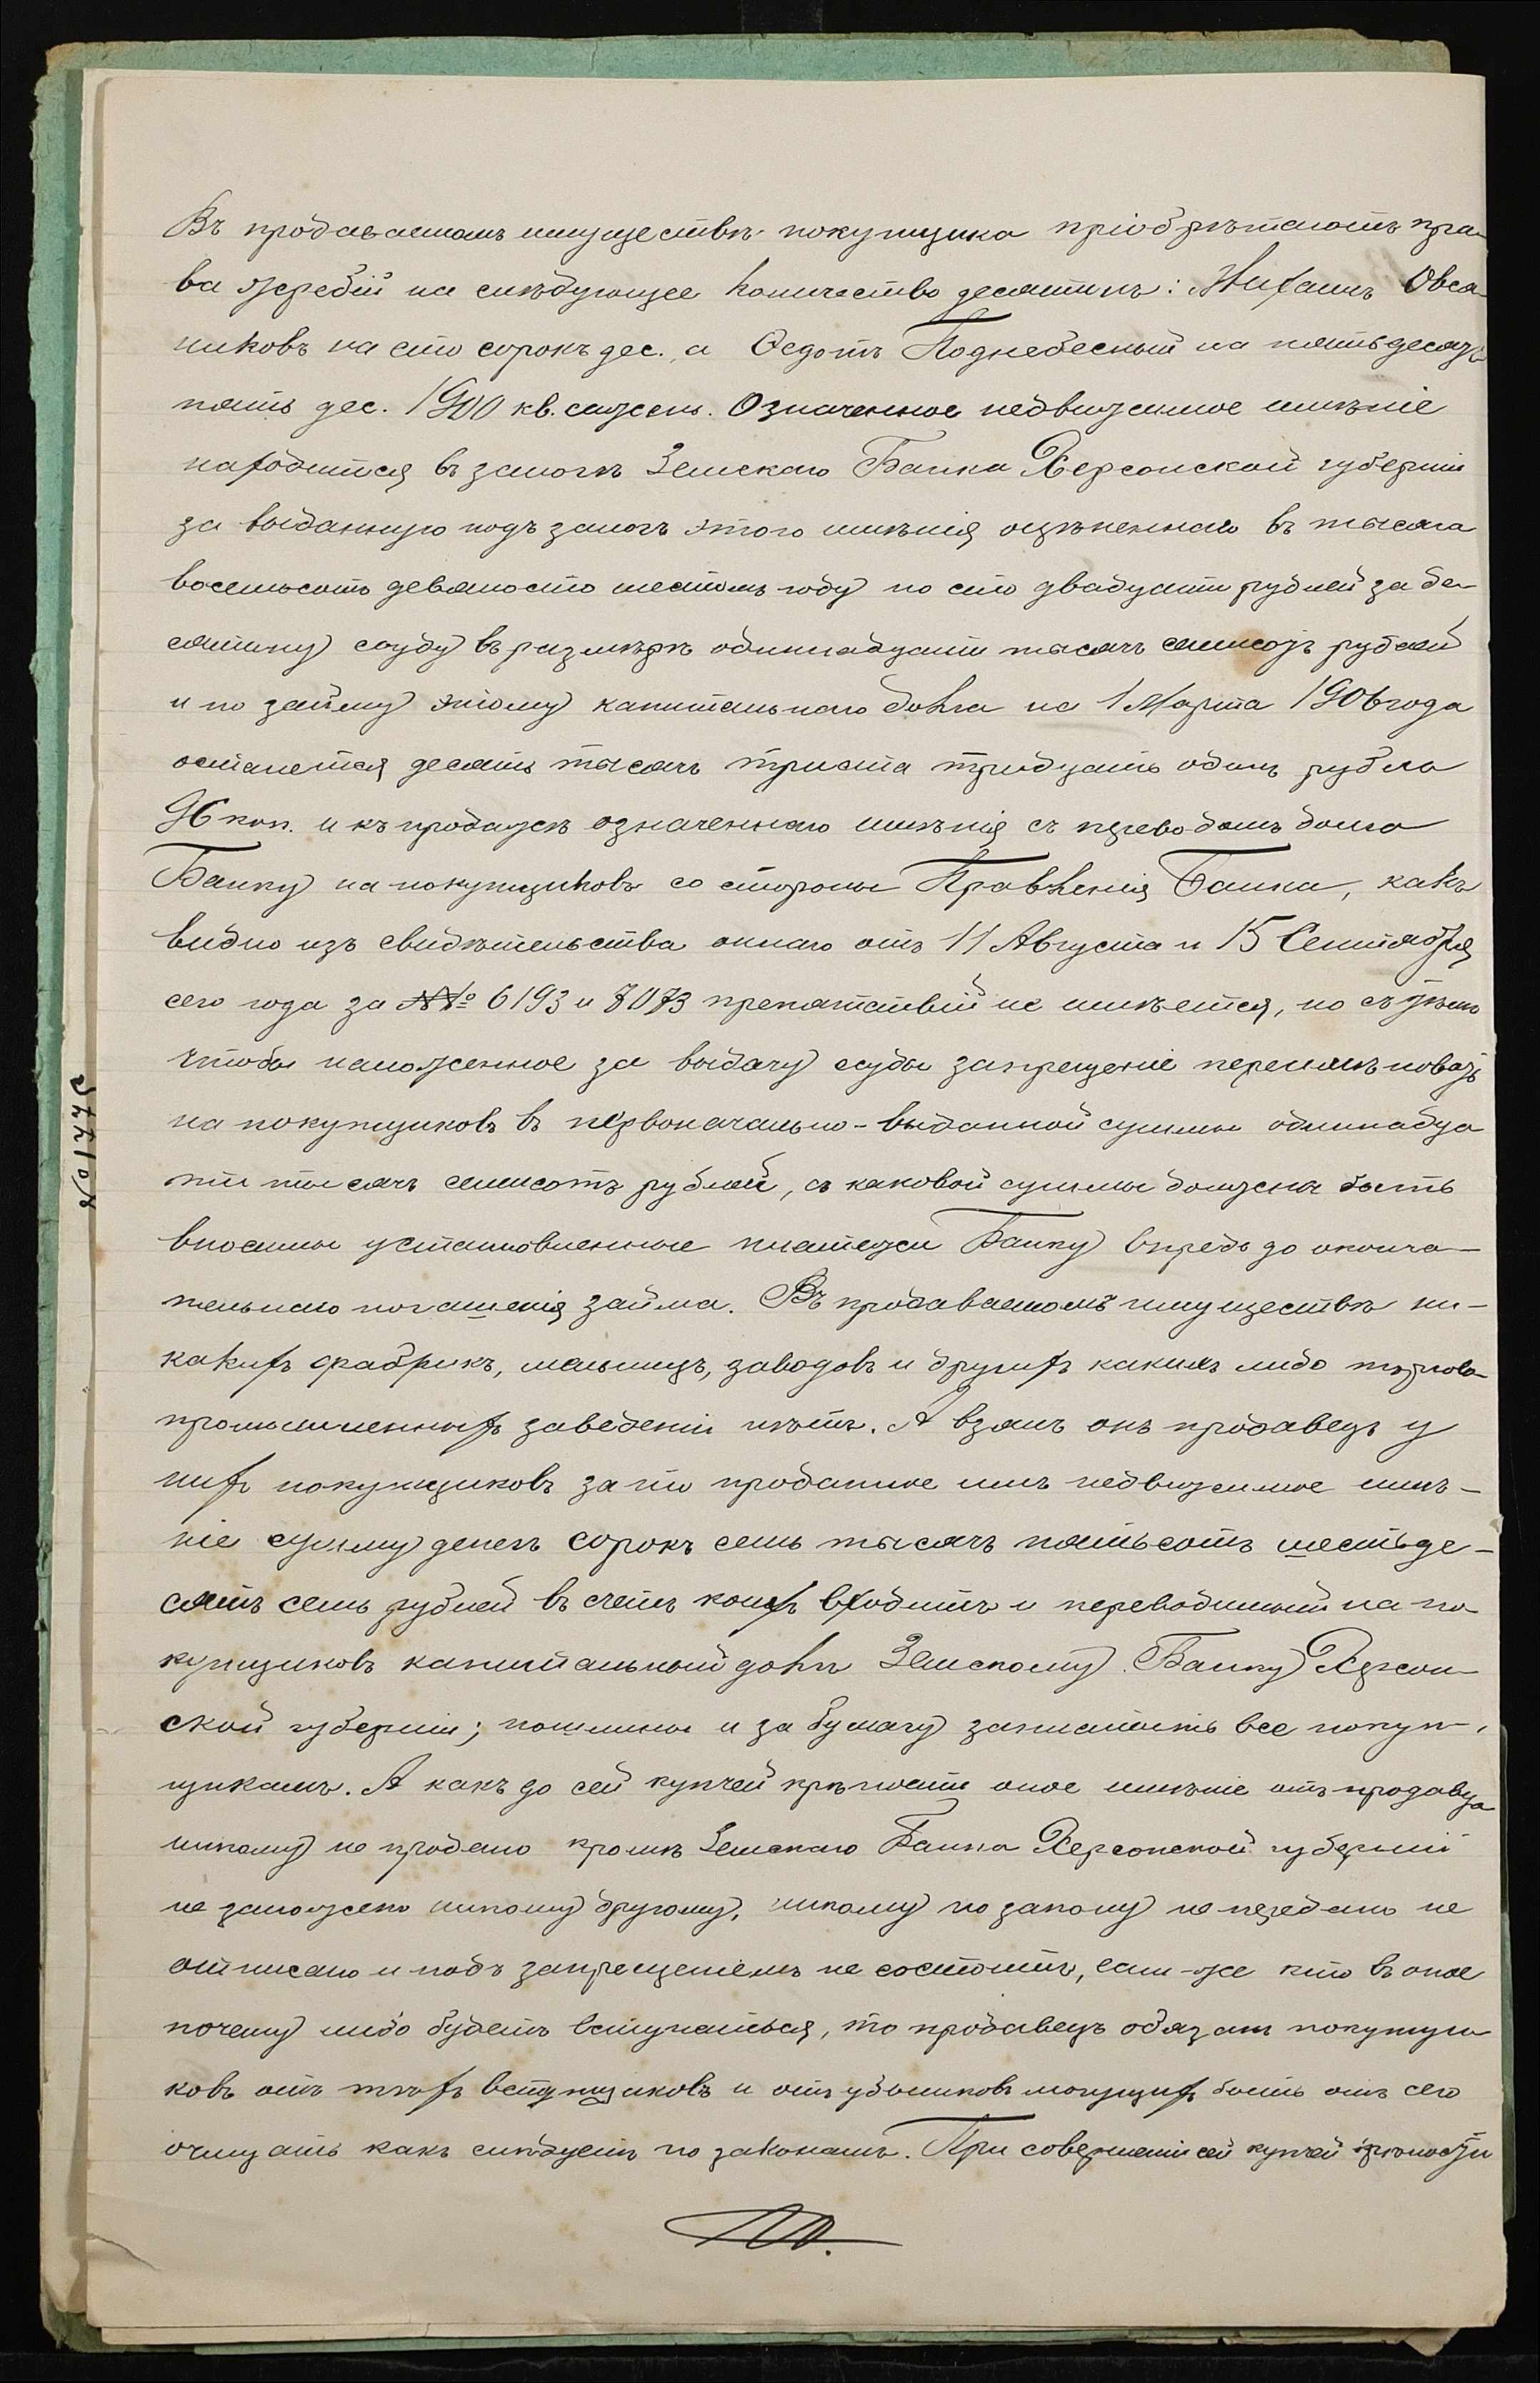 Въ продаваемомъ имуществѣ покупщики пріобрѣтаютъ пра-
ва жеребій на слѣдующее количество десятинъ: Михаилъ Овся-
никовъ на сто сорокъ дес., а Ѳедотъ Поднебесный на пятьдесятъ
пять дес. 1900 кв. сажень. Означенное недвижимое имѣніе
находится въ залогѣ Земскаго Банка Херсонской губерніи
за выданную подъ залогъ этого имѣнія оцѣненнаго въ тысяча
восемьсотъ девяносто шестомъ году по сто двадцати рублей за де-
сятину ссуду въ размѣрѣ одиннадцати тысячъ семисотъ рублей
и по займу этому капитальнаго долга на 1 Марта 1906 года
останется десять тысячъ триста тридцать одинъ рубль
96 коп. и къ продажѣ означеннаго имѣнія съ переводомъ долга
Банку на покупщиковъ со стороны Правленія Банка, какъ
видно изъ свидѣтельства оннаго отъ 11 Августа и 15 Сентября
сего года за №№ 6193 и 7073 препятствій не имѣется, но съ тѣмъ
чтобы наложенное за выдачу ссуды запрещеніе переименовать
на покупщиковъ въ первоначально-выданной суммы одиннадца
ти тысячъ семисотъ рублей, съ каковой суммы должны быть
вносимы установленные платежи Банку впредь до оконча-
тельнаго погашенія займа. Въ продаваемомъ имуществѣ ни-
какихъ фабрикъ, мельницъ, заводовъ и другихъ какихъ либо торгово-
промышленныхъ заведеніи нѣтъ. А взялъ онъ продавецъ у
нихъ покупщиковъ за то проданное имъ недвижимое имѣ-
ніе сумму денегъ сорокъ семь тысячъ пятьсотъ шестьде-
сятъ семь рублей въ счетъ коихъ входитъ и переводимый на по-
купщиковъ капитальный долгъ Земскому Банку Херсон-
ской губерніи; пошлины и за бумагу заплатить все покуп-
щикамъ. А какъ до сей купчей крѣпости оное имѣніе отъ продавца
никому не продано кромѣ Земскаго Банка Херсонской губерніи
не заложено никому другому, никому по закону не передано не
отписано и подъ запрещеніемъ не состоитъ, если-же кто въ оное
почему либо будетъ вступаться, то продавецъ обязанъ покупщи
ковъ отъ тѣхъ вступщиковъ и отъ убытковъ могущихъ быть отъ сего
очищать какъ слѣдуетъ по законамъ. При совершеніи сей купчей крѣпости